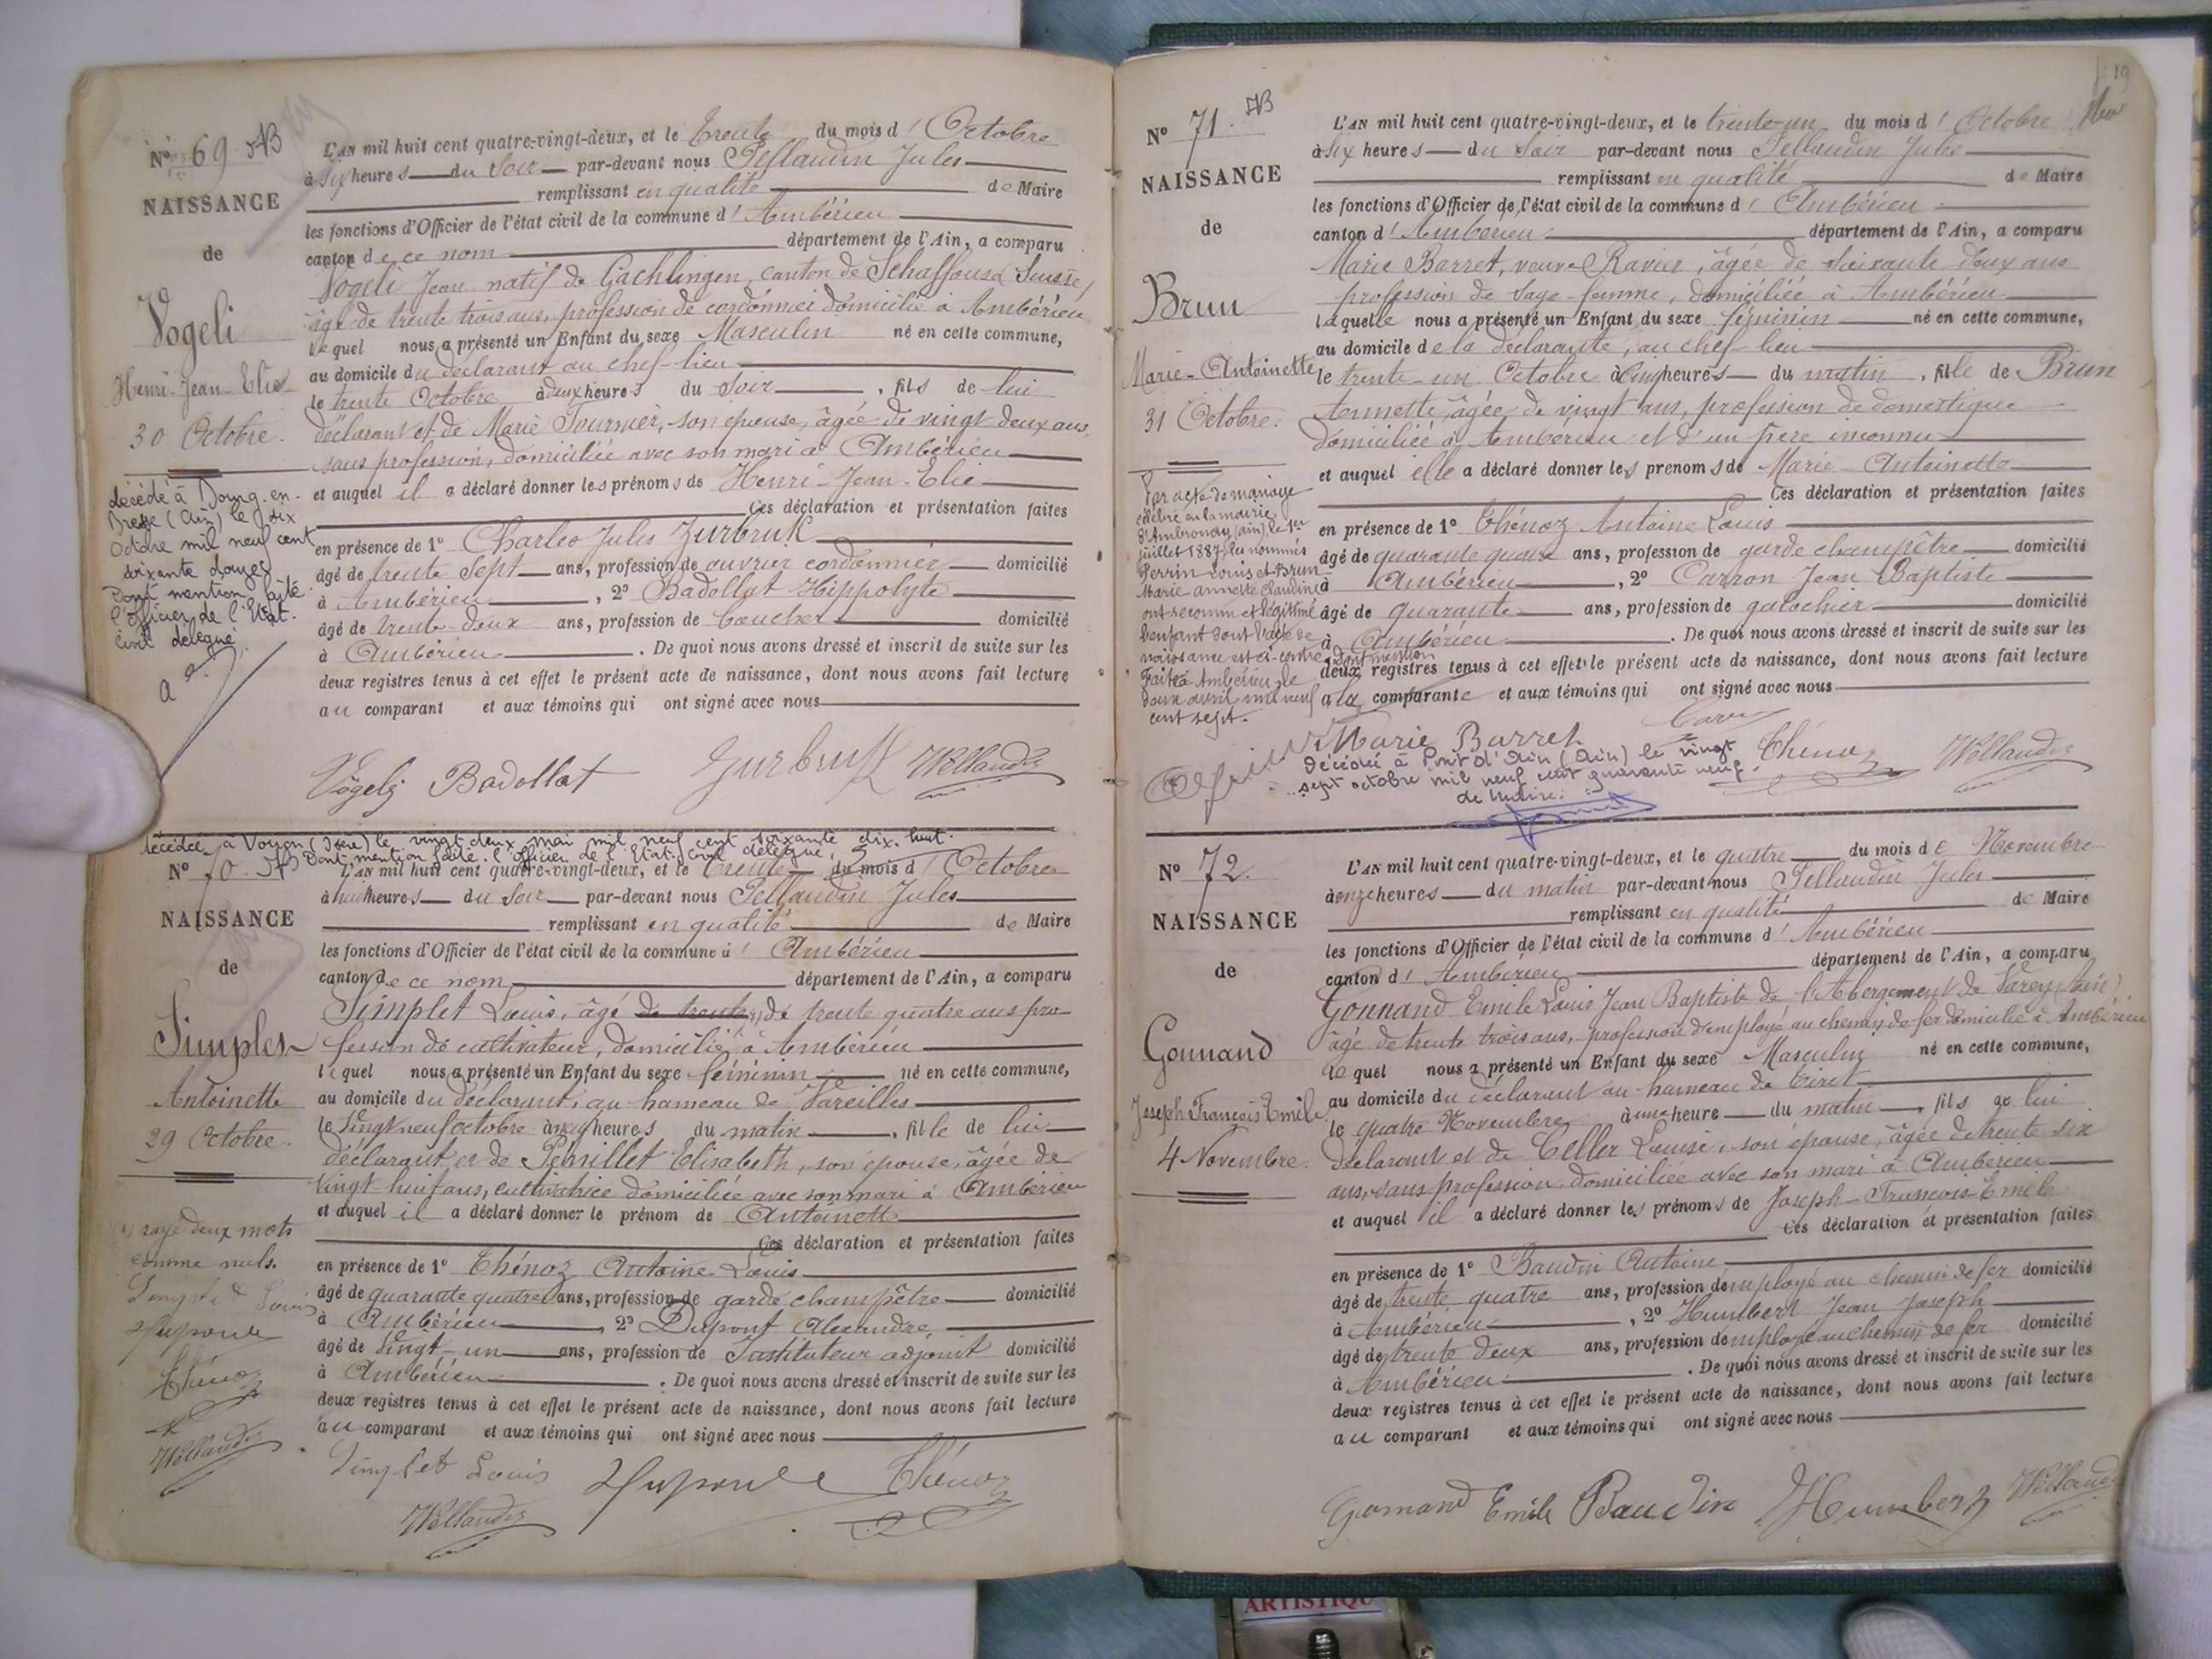 N° 69
NAISSANCE
de
Vogeli
Henri-Jean-Elie
30 Octobre.
décédé à Bourg-en-
Bresse (Ain) le six
octobre mil neuf cent
soixante douze
Dont mention faite
l'officier de l'Etat-
civil délégué
L'AN mil huit cent quatre-vingt-deux, et le Trente du mois d' Octobre
à six heures du Soir par-devant nous Pellaudin Jules
remplissant en qualité de Maire
les fonctions d'Officier de l'état civil de la commune d' Ambérieu
canton de ce nom département de l'Ain, a comparu
Vogeli Jean natif de Gachlingen, canton de Schaffouse (Suisse)
âgé de trente trois ans, profession de cordonnier domicilié à Ambérieu
lequel nous a présenté un Enfant du sexe Masculin né en cette commune,
au domicile du déclarant au chef-lieu
le trente Octobre à deux heures du Soir, fils de lui
déclarant et de Marie Fournier, son épouse, âgée de vingt deux ans,
sans profession, domiciliée avec son mari à Ambérieu
et auquel il a déclaré donner les prénoms de Henri-Jean-Elie
Ces déclaration et présentation faites
en présence de 1° Charles Jules Zurbruk
âgé de trente sept ans, profession de ouvrier cordonnier domicilié
à Ambérieu, 2° Badollat Hippolyte
âgé de trente-deux ans, profession de boucher domicilié
à Ambérieu. De quoi nous avons dressé et inscrit de suite sur les
deux registres tenus à cet effet le présent acte de naissance, dont nous avons fait lecture
au comparant et aux témoins qui ont signé avec nous
Vögeli Badollat Zurbruk Pellaudin
décédée à Voiron (Isère) le vingt deux mai mil neuf cent soixante dix-huit.
Dont mention faite. l'officier de l'Etat-civil délégué,
N° 70.
NAISSANCE
de
Simplet
Antoinette
29 Octobre.
rayé deux mots
comme nuls.
Simplet Louis
Dupont
Thénoz
Pellaudin
L'AN mil huit cent quatre-vingt-deux, et le Trente du mois d' Octobre
à huit heures du Soir par-devant nous Pellaudin Jules
remplissant en qualité de Maire
les fonctions d'Officier de l'état civil de la commune d' Ambérieu
canton de ce nom département de l'Ain, a comparu
Simplet Louis, âgé de trente, de trente quatre ans pro
fession de cultivateur, domicilié à Ambérieu
lequel nous a présenté un Enfant du sexe féminin né en cette commune,
au domicile du déclarant, au hameau de Vareilles
le Vingt neuf octobre à neuf heures du matin, fille de lui
déclarant et de Penillet Elisabeth, son épouse, âgée de
Vingt-huit ans, cultivatrice domiciliée avec son mari à Ambérieu
et auquel il a déclaré donner le prénom de Antoinette
Ces déclaration et présentation faites
en présence de 1° Thénoz Antoine Louis
âgé de quarante quatre ans, profession de garde champêtre domicilié
à Ambérieu, 2° Dupont Alexandre
âgé de Vingt-un ans, profession de Instituteur adjoint domicilié
à Ambérieu. De quoi nous avons dressé et inscrit de suite sur les
deux registres tenus à cet effet le présent acte de naissance, dont nous avons fait lecture
au comparant et aux témoins qui ont signé avec nous
Simplet Louis Dupont Thénoz
Pellaudin
19
N° 71.
NAISSANCE
de
Brun
Marie-Antoinette
31 Octobre.
Par acte de mariage
célébré en la mairie
d'Ambronay (ain) le 1er
juillet 1887, les nommés
Perrin Louis et Brun
Marie annette Claudine
ont reconnu et légitimé
l'enfant dont l'acte de
naissance est ci-contre
dont mention
Faite à Ambérieu, le
deux avril mil neuf
cent sept.
L'AN mil huit cent quatre-vingt-deux, et le trente-un du mois d' Octobre
à six heures du Soir par-devant nous Pellaudin Jules
remplissant en qualité de Maire
les fonctions d'Officier de l'état civil de la commune d' Ambérieu
canton d' Ambérieu département de l'Ain, a comparu
Marie Barret, veuve Ravier, âgée de soixante deux ans
profession de sage-femme, domiciliée à Ambérieu
laquelle nous a présenté un Enfant du sexe féminin né en cette commune,
au domicile de la déclarante, au chef-lieu
le trente-un Octobre à cinq heures du matin, fille de Brun
Annette, âgée de vingt ans, profession de domestique
domiciliée à Ambérieu et d'un père inconnu
et auquel elle a déclaré donner les prénoms de Marie-Antoinette
Ces déclaration et présentation faites
en présence de 1° Thénoz Antoine Louis
âgé de quarante quatre ans, profession de garde champêtre domicilié
à Ambérieu, 2° Carron Jean Baptiste
âgé de quarante ans, profession de galochier domicilié
à Ambérieu. De quoi nous avons dressé et inscrit de suite sur les
deux registres tenus à cet effet le présent acte de naissance, dont nous avons fait lecture
a la comparante et aux témoins qui ont signé avec nous
Marie Barret Thénoz Pellaudin
Décédée à Pont d'Ain (Ain) le vingt
sept octobre mil neuf cent quarante neuf.
N° 72.
NAISSANCE
de
Gonnand
Joseph François Emile
4 Novembre.
L'AN mil huit cent quatre-vingt-deux, et le quatre du mois de Novembre
à onze heures du matin par-devant nous Pellaudin Jules
remplissant en qualité de Maire
les fonctions d'Officier de l'état civil de la commune d' Ambérieu
canton d' Ambérieu département de l'Ain, a comparu
Gonnand Emile Louis Jean Baptiste de l'Abergement de Varey (Ain)
âgé de trente trois ans, profession d'employé au chemin de fer domicilié à Ambérieu
lequel nous a présenté un Enfant du sexe Masculin né en cette commune,
au domicile du déclarant au hameau de Tiret
le quatre Novembre à une heure du matin, fils de lui
déclarant et de Celler Louise, son épouse, âgée de trente six
ans, sans profession domiciliée avec son mari à Ambérieu
et auquel il a déclaré donner les prénoms de Joseph-François-Emile
Ces déclaration et présentation faites
en présence de 1° Baudin Antoine
âgé de trente quatre ans, profession d'employé au chemin de fer domicilié
à Ambérieu, 2° Humbert Jean Joseph
âgé de trente deux ans, profession d'employé au chemin de fer domicilié
à Ambérieu. De quoi nous avons dressé et inscrit de suite sur les
deux registres tenus à cet effet le présent acte de naissance, dont nous avons fait lecture
au comparant et aux témoins qui ont signé avec nous
Gonnand Emile Baudin Humbert Pellaudin
ARTISTIQU